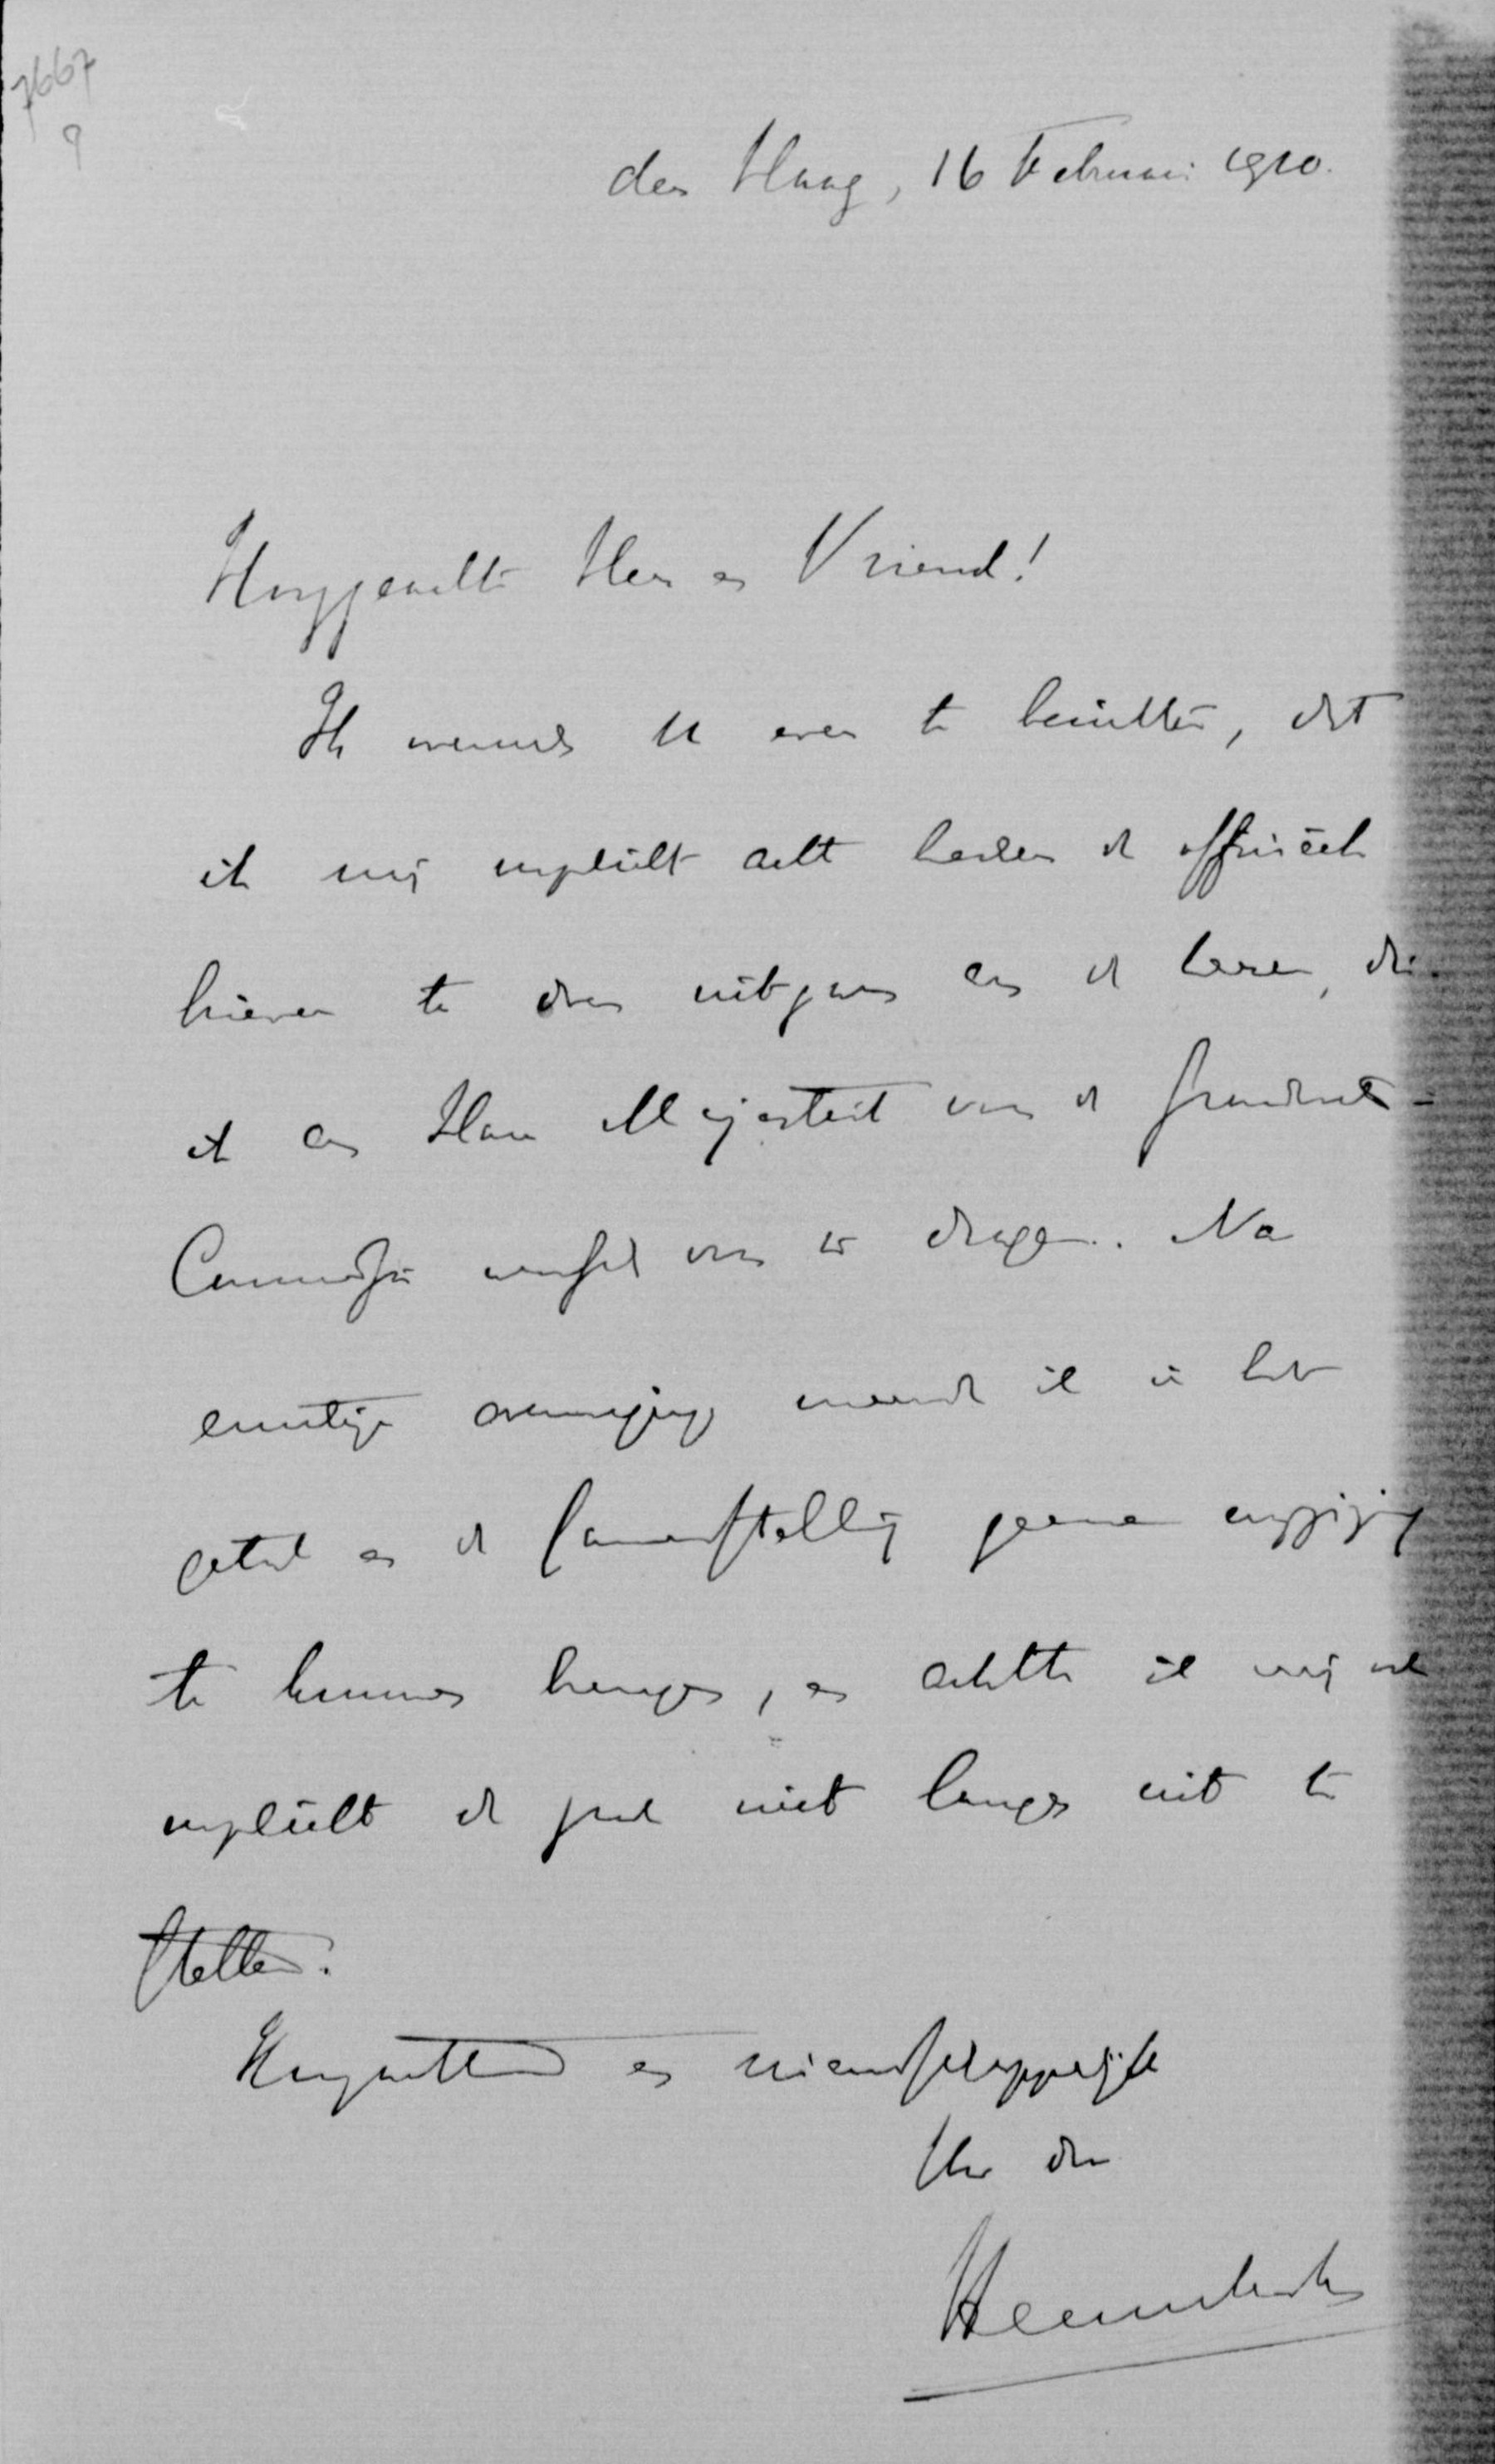 7667
9
den Haag, 16 Februari 1910.
Hooggeachte Heer en Vriend!
Ik wensch U even te berichten, dat
ik mij verplicht acht heden de officieele
brieven te doen uitgaan aan de heeren, die
ik aan Hare Majesteit voor de Grondwets-
Commissie wensch voor te dragen. Na
ernstige overweging meende ik in het
getal en de samenstelling geene wijziging
te kunnen brengen, en achtte ik mij ook
verplicht de zaak niet langer uit te
stellen.
Hoogachtend en vriendschappelijk
Uw dw
Heemskerk